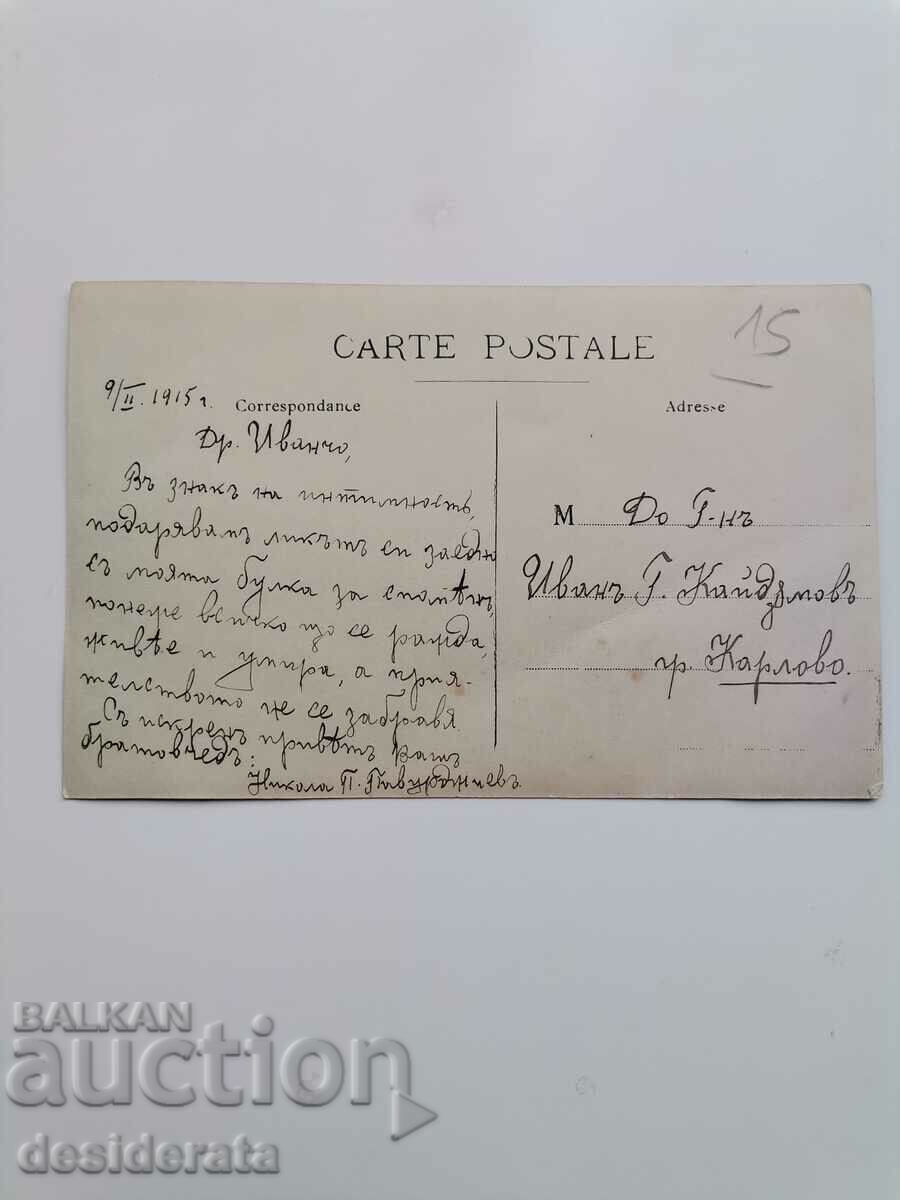 15
CARTE POSTALE
9/II. 1915 г.
Correspondance
Др. Иванчо,
Въ знакъ на интимность,
подарявамъ ликътъ си заедно
съ моята булка за споменъ,
понеже всичко що се ражда,
живѣе и умира, а прия-
телството не се забравя.
Съ искренъ привѣтъ Вашъ
братовчедъ:
Никола П. Павурджиевъ.
Adresse
M До Г-нъ
Иванъ Г. Кайдъмовъ
гр. Карлово.
BALKAN
auction
desiderata